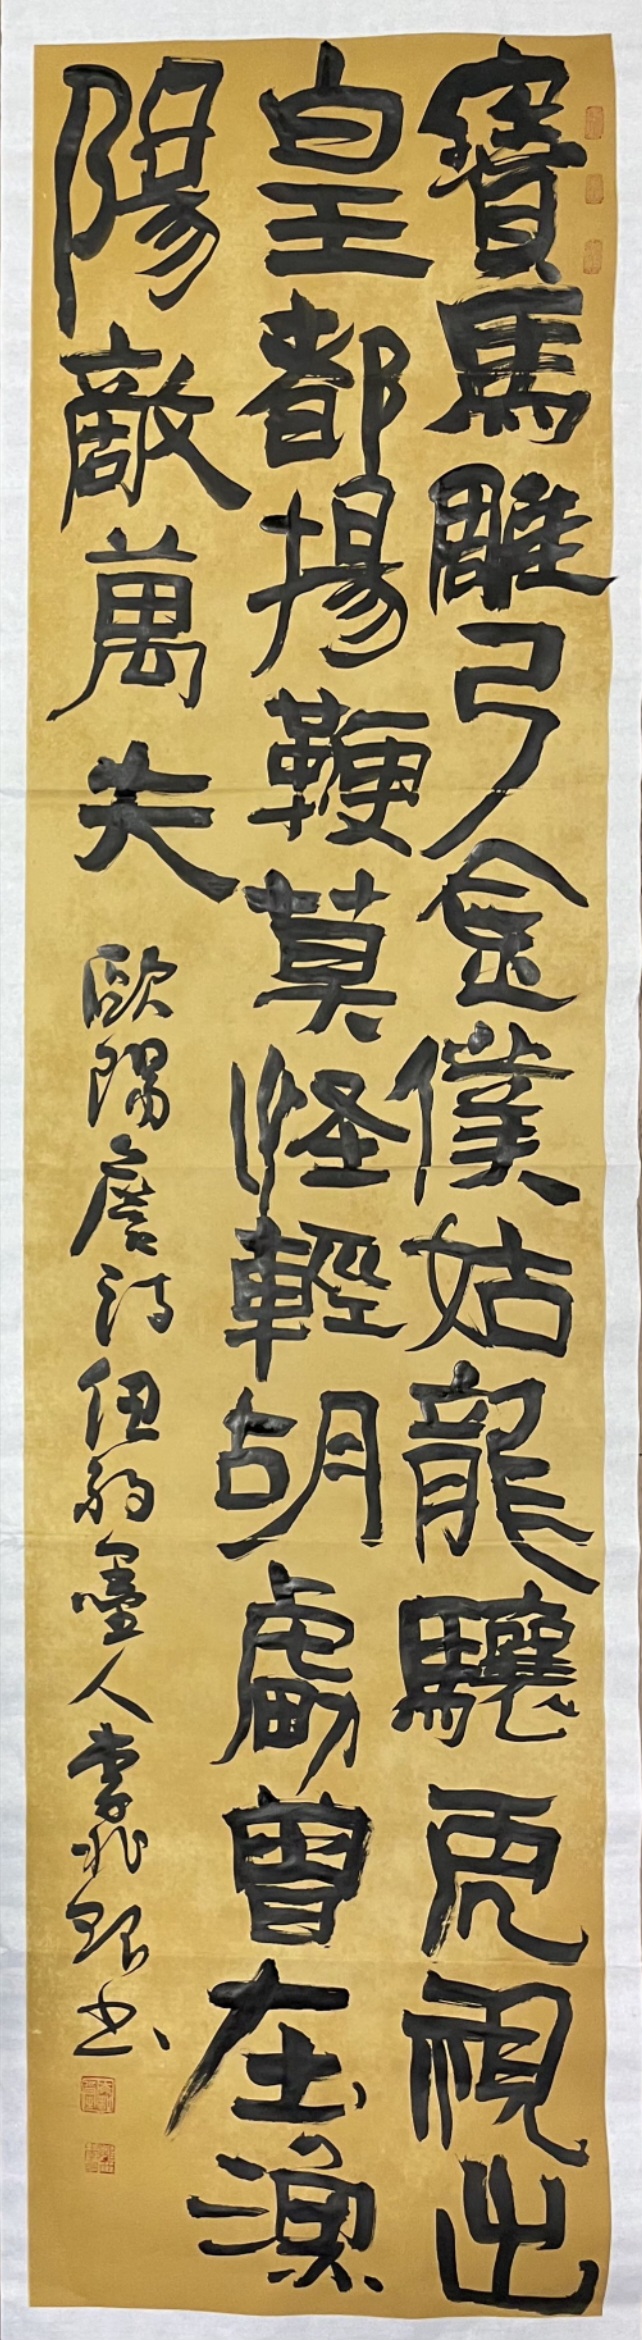 寶馬雕弓金僕姑龍驤虎視出
皇都揚鞭莫怪輕胡虜曾在漁
陽敵萬夫
歐陽詹詩 墨人李 書